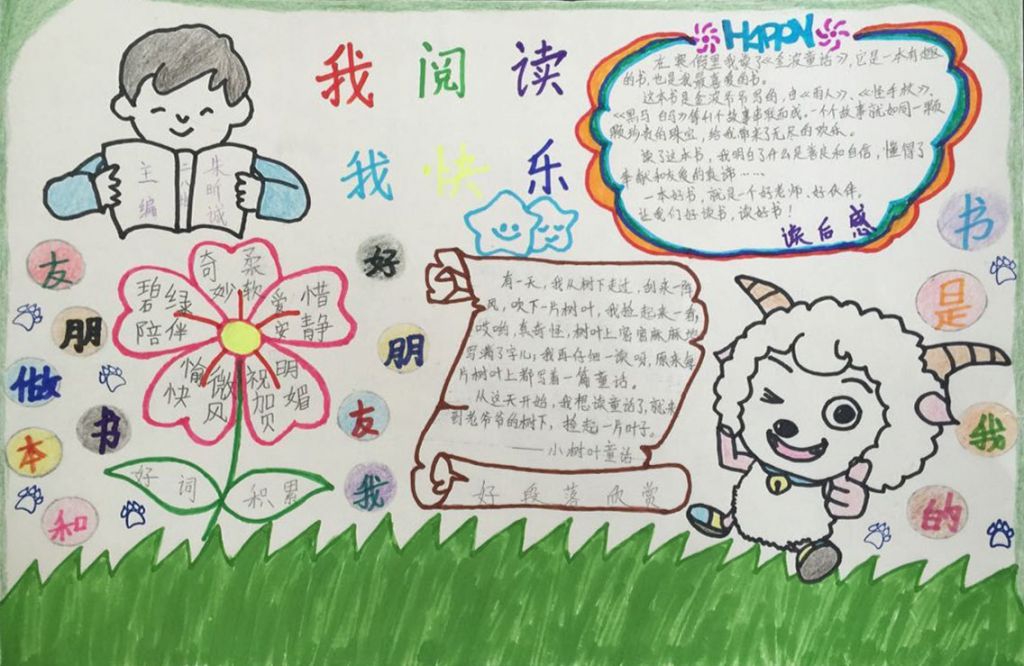 我阅读
我快乐
主编
朱昕诚
HAPPY
在寒假里我读了《金波童话》,它是一本有趣
的书,也是我最喜爱的书。
这本书是金波爷爷写的,由《雨人》、《怪手杖》、
《黑马 白马》等41个故事串联而成,一个个故事就如同一颗
颗珍贵的珠宝,给我带来了无尽的欢乐。
读了这本书,我明白了什么是善良和自信,懂得了
奉献和友爱的真谛……
一本好书,就是一个好老师、好伙伴。
让我们好读书,读好书!
读后感
奇妙
柔软
碧绿
陪伴
爱惜
安静
愉快
微风
祝贺
明媚
好词
积累
有一天,我从树下走过,刮来一阵
风,吹下一片树叶,我捡起来一看,
哎哟,真奇怪,树叶上密密麻麻地
写满了字儿;我再仔细一读呀,原来每
片树叶上都写着一篇童话。
从这天开始,我想读童话了,就来
到老爷爷的树下,捡起一片叶子。
——小树叶童话
好段落欣赏
书是我的
好朋友我
和本书做朋友